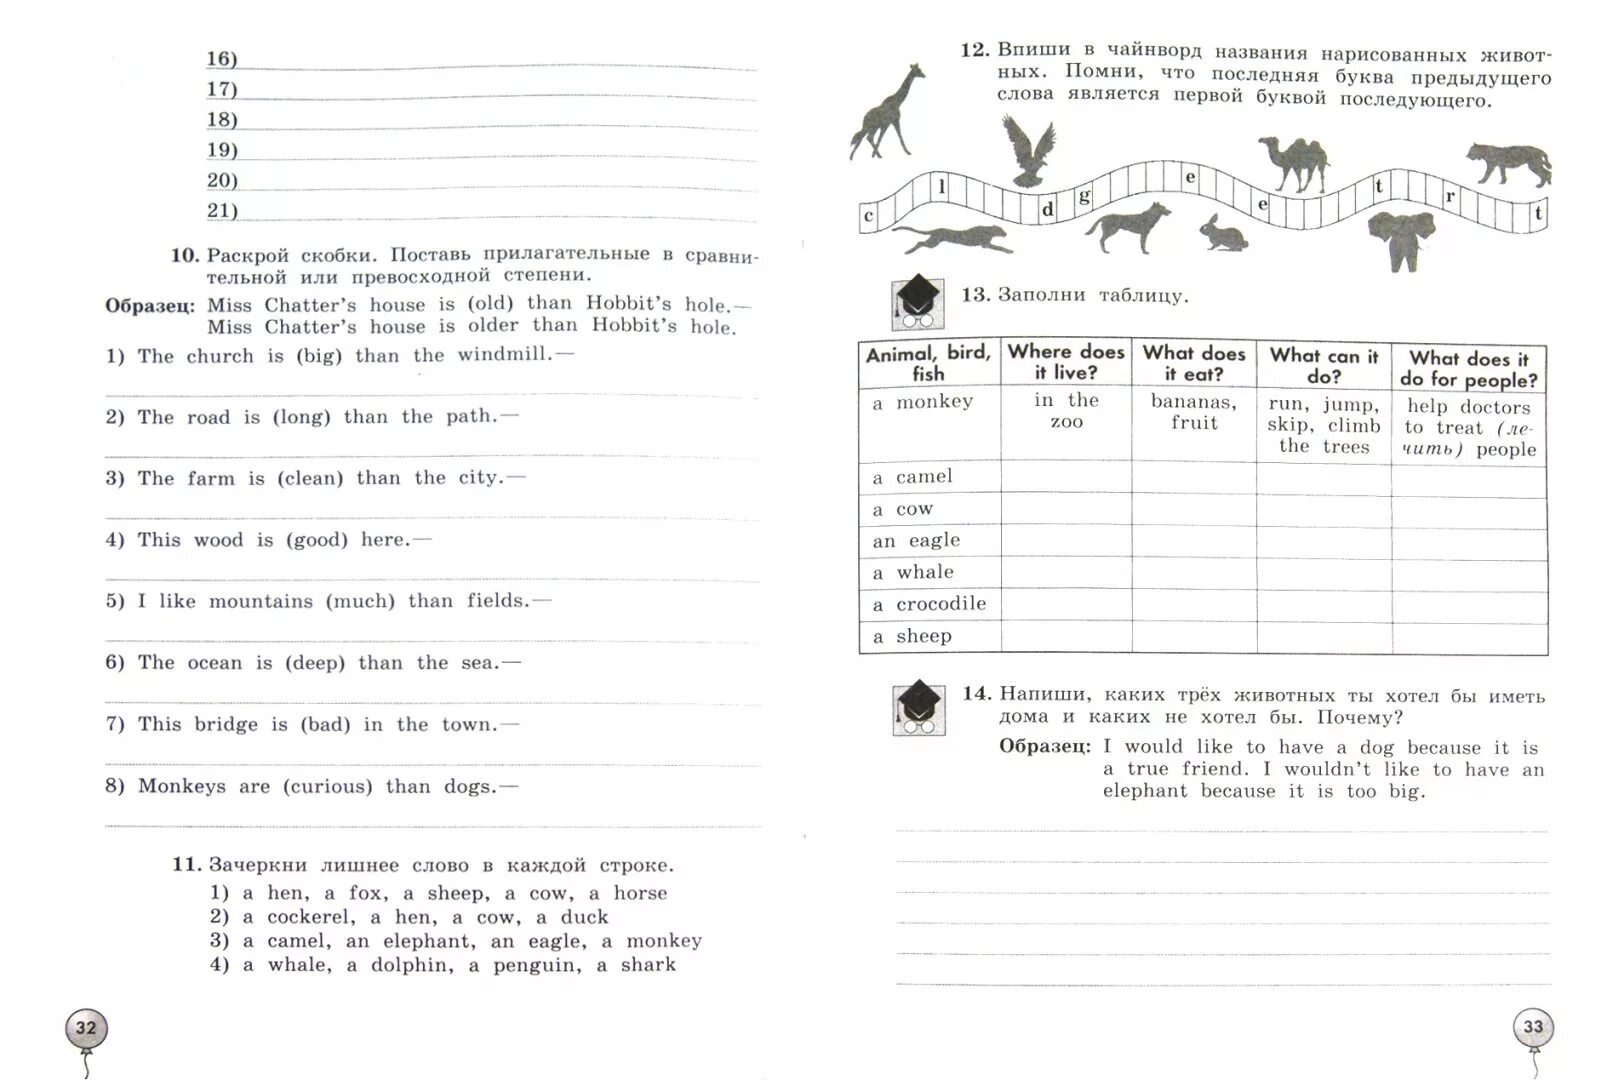 16)
17)
18)
19)
20)
21)
10. Раскрой скобки. Поставь прилагательные в сравни-
тельной или превосходной степени.
Образец: Miss Chatter's house is (old) than Hobbit's hole.—
Miss Chatter's house is older than Hobbit's hole.
1) The church is (big) than the windmill.—
2) The road is (long) than the path.—
3) The farm is (clean) than the city.—
4) This wood is (good) here.—
5) I like mountains (much) than fields.—
6) The ocean is (deep) than the sea.—
7) This bridge is (bad) in the town.—
8) Monkeys are (curious) than dogs.—
11. Зачеркни лишнее слово в каждой строке.
1) a hen, a fox, a sheep, a cow, a horse
2) a cockerel, a hen, a cow, a duck
3) a camel, an elephant, an eagle, a monkey
4) a whale, a dolphin, a penguin, a shark
32
12. Впиши в чайнворд названия нарисованных живот-
ных. Помни, что последняя буква предыдущего
слова является первой буквой последующего.
c l d g e e t r t
13. Заполни таблицу.
Animal, bird, fish
Where does it live?
What does it eat?
What can it do?
What does it do for people?
a monkey
in the zoo
bananas, fruit
run, jump, skip, climb the trees
help doctors to treat (ле-
чить) people
a camel
a cow
an eagle
a whale
a crocodile
a sheep
14. Напиши, каких трёх животных ты хотел бы иметь
дома и каких не хотел бы. Почему?
Образец: I would like to have a dog because it is
a true friend. I wouldn't like to have an
elephant because it is too big.
33